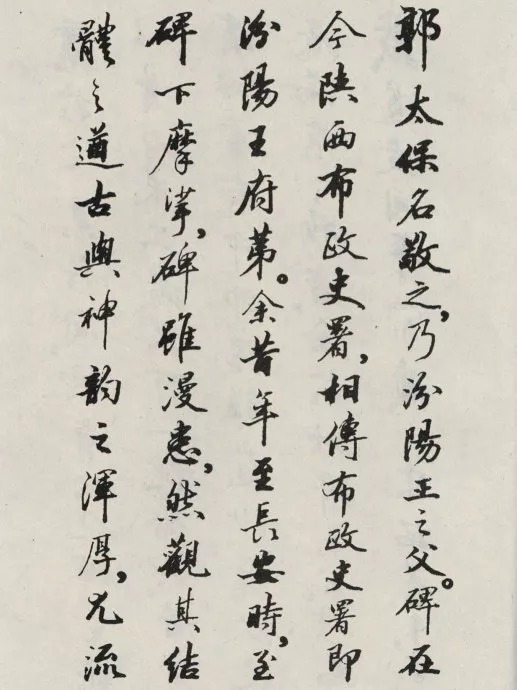 郭太保名敬之,乃汾陽王之父。碑在
今陕西布政史署,相傳布政史署即
汾陽王府第。余昔年至長安時,至
碑下摩挲,碑雖漫漶,然觀其结
體之遒古與神韵之渾厚,尤流